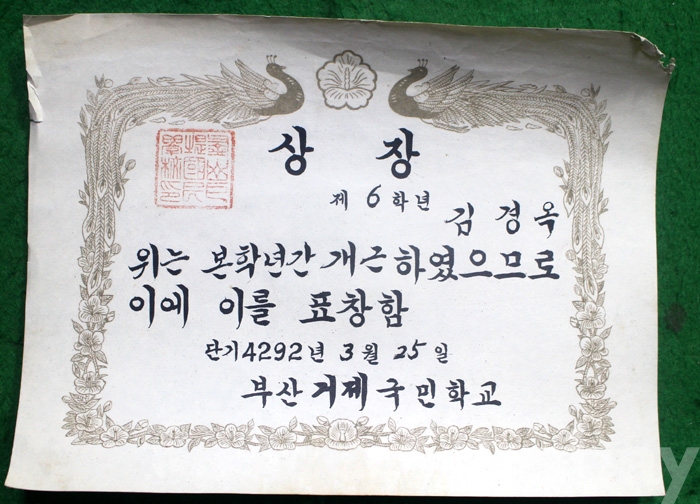 상장
제 6 학년
김경옥
위는 본학년간 개근하였으므로
이에 이를 표창함
단기 4292년 3월 25일
부산거제국민학교